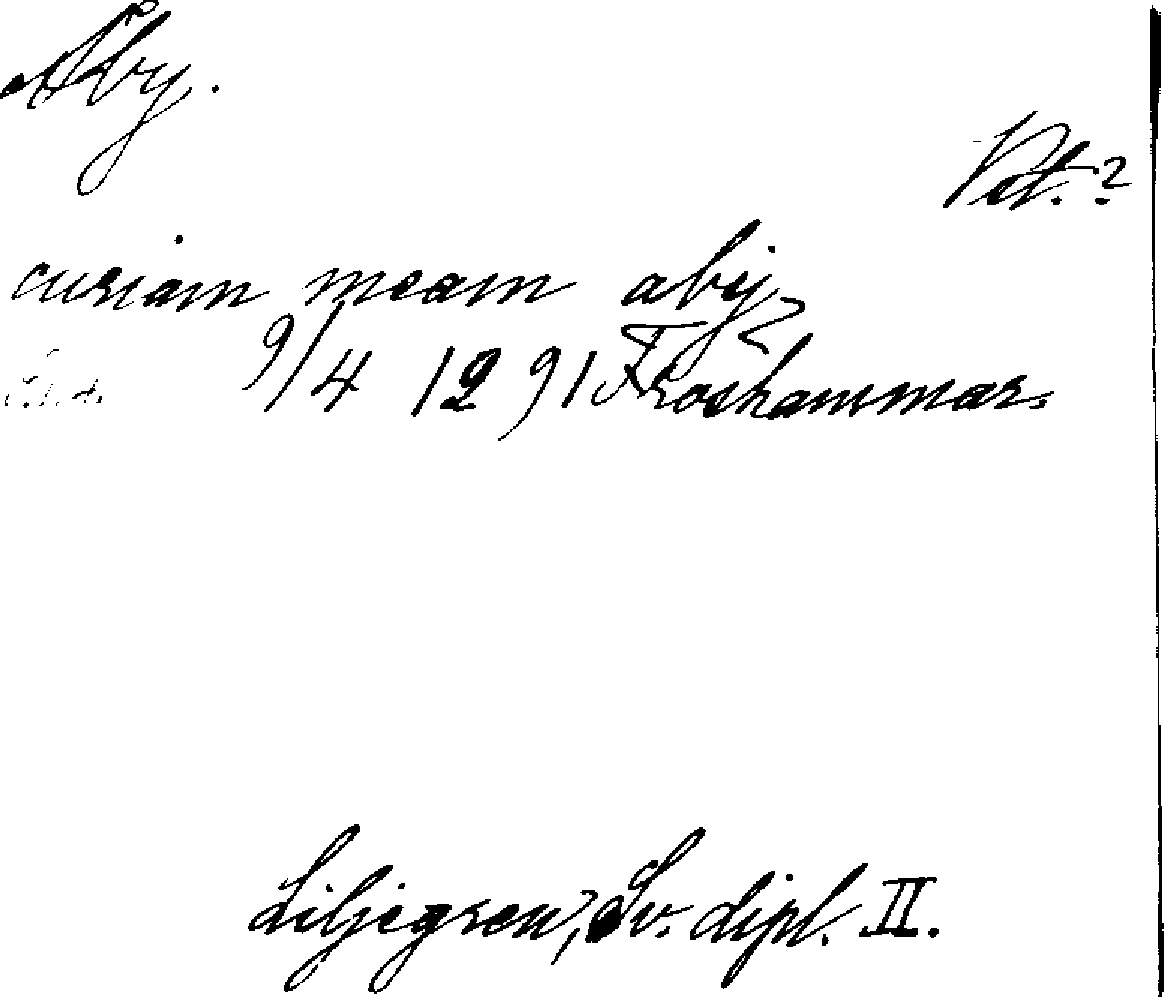 Åby.
Vet.?
curiam meam abij
9/4 1291 Froshammar.
Liljegren, Sv. dipl. II.